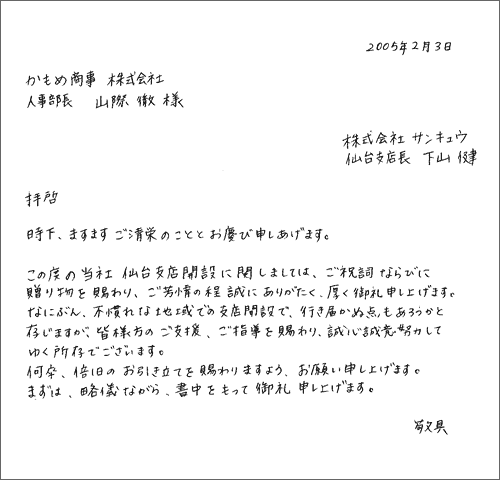 2005年2月3日
かもめ商事 株式会社
人事部長 山際 徹 様
株式会社 サンキュウ
仙台支店長 下山 健
拝啓
時下、ますます ご清栄のこととお慶び申しあげます。
この度の当社 仙台支店開設に関しましては、ご祝詞ならびに
贈り物を賜わり、ご芳情の程 誠にありがたく、厚く御礼申し上げます。
なにぶん、不慣れな地域での支店開設で、行き届かぬ点もあろうかと
存じますが、皆様方のご支援、ご指導を賜わり、誠心誠意努力して
ゆく所存でございます。
何卒、倍旧のお引き立てを賜わりますよう、お願い申し上げます。
まずは、略儀ながら、書中をもって御礼 申し上げます。
敬具